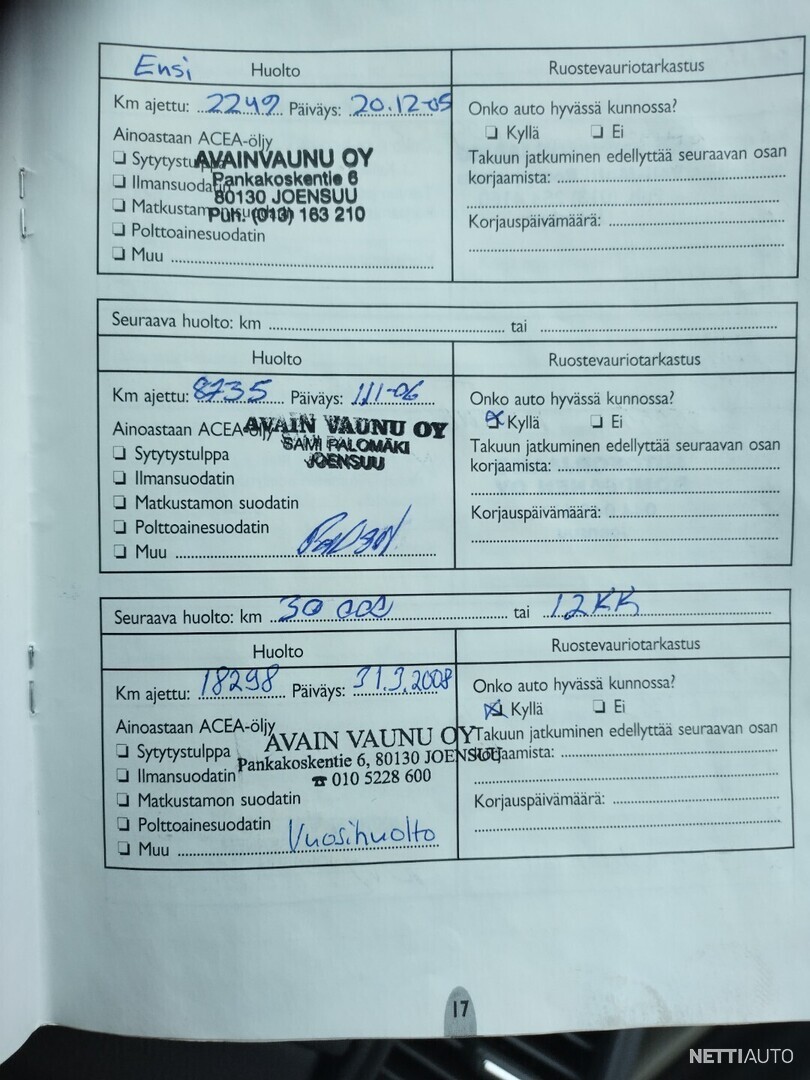 Ensi Huolto
Ruostevauriotarkastus
Km ajettu: 2249 Päiväys: 20.12-05
Ainoastaan ACEA-öljy
Sytytystu
AVAINVAUNU OY
Ilmansuodatin
Pankakoskentie 6
80130 JOENSUU
Matkustamon suodatin
Puh. (013) 163 210
Polttoainesuodatin
Muu
Onko auto hyvässä kunnossa?
Kyllä Ei
Takuun jatkuminen edellyttää seuraavan osan
korjaamista:
Korjauspäivämäärä:
Seuraava huolto: km tai
Huolto
Ruostevauriotarkastus
Km ajettu: 8735 Päiväys: 1.11-06
Ainoastaan ACEA-öljy
AVAIN VAUNU OY
SAMI PALOMÄKI
JOENSUU
Sytytystulppa
Ilmansuodatin
Matkustamon suodatin
Polttoainesuodatin
Muu
Onko auto hyvässä kunnossa?
Kyllä Ei
Takuun jatkuminen edellyttää seuraavan osan
korjaamista:
Korjauspäivämäärä:
Seuraava huolto: km 30 000 tai 12KK
Huolto
Ruostevauriotarkastus
Km ajettu: 18298 Päiväys: 31.3.2008
Ainoastaan ACEA-öljy
AVAIN VAUNU OY
Pankakoskentie 6, 80130 JOENSUU
☎ 010 5228 600
Sytytystulppa
Ilmansuodatin
Matkustamon suodatin
Polttoainesuodatin
Muu Vuosihuolto
Onko auto hyvässä kunnossa?
Kyllä Ei
Takuun jatkuminen edellyttää seuraavan osan
korjaamista:
Korjauspäivämäärä:
17
NETTIAUTO